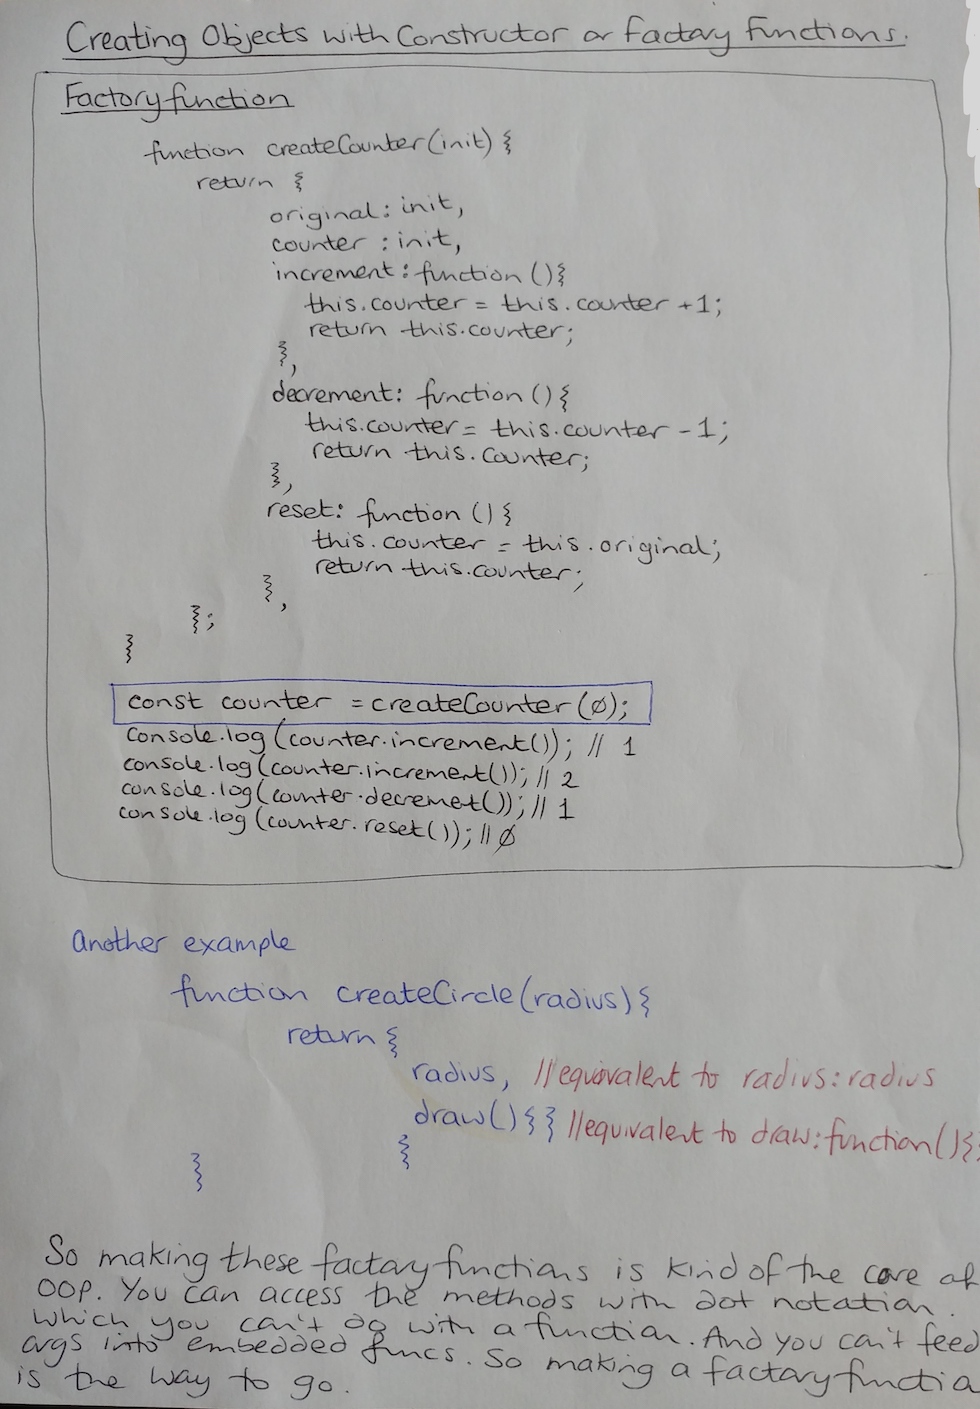 Creating Objects with Constructor or Factory Functions.
Factory function
function createCounter(init) {
return {
original: init,
counter : init,
increment: function () {
this.counter = this.counter +1;
return this.counter;
},
decrement: function () {
this.counter = this.counter -1;
return this.counter;
},
reset: function () {
this.counter = this.original;
return this.counter;
},
};
}
const counter = createCounter(0);
console.log(counter.increment()); // 1
console.log(counter.increment()); // 2
console.log(counter.decremet()); // 1
console.log(counter.reset()); // 0
Another example
function createCircle(radius) {
return {
radius, //equivalent to radius:radius
draw() {} //equivalent to draw:function() {}
}
}
So making these factory functions is kind of the core of
OOP. You can access the methods with dot notation.
which you can't do with a function. And you can't feed
args into embedded funcs. So making a factory functio
is the way to go.